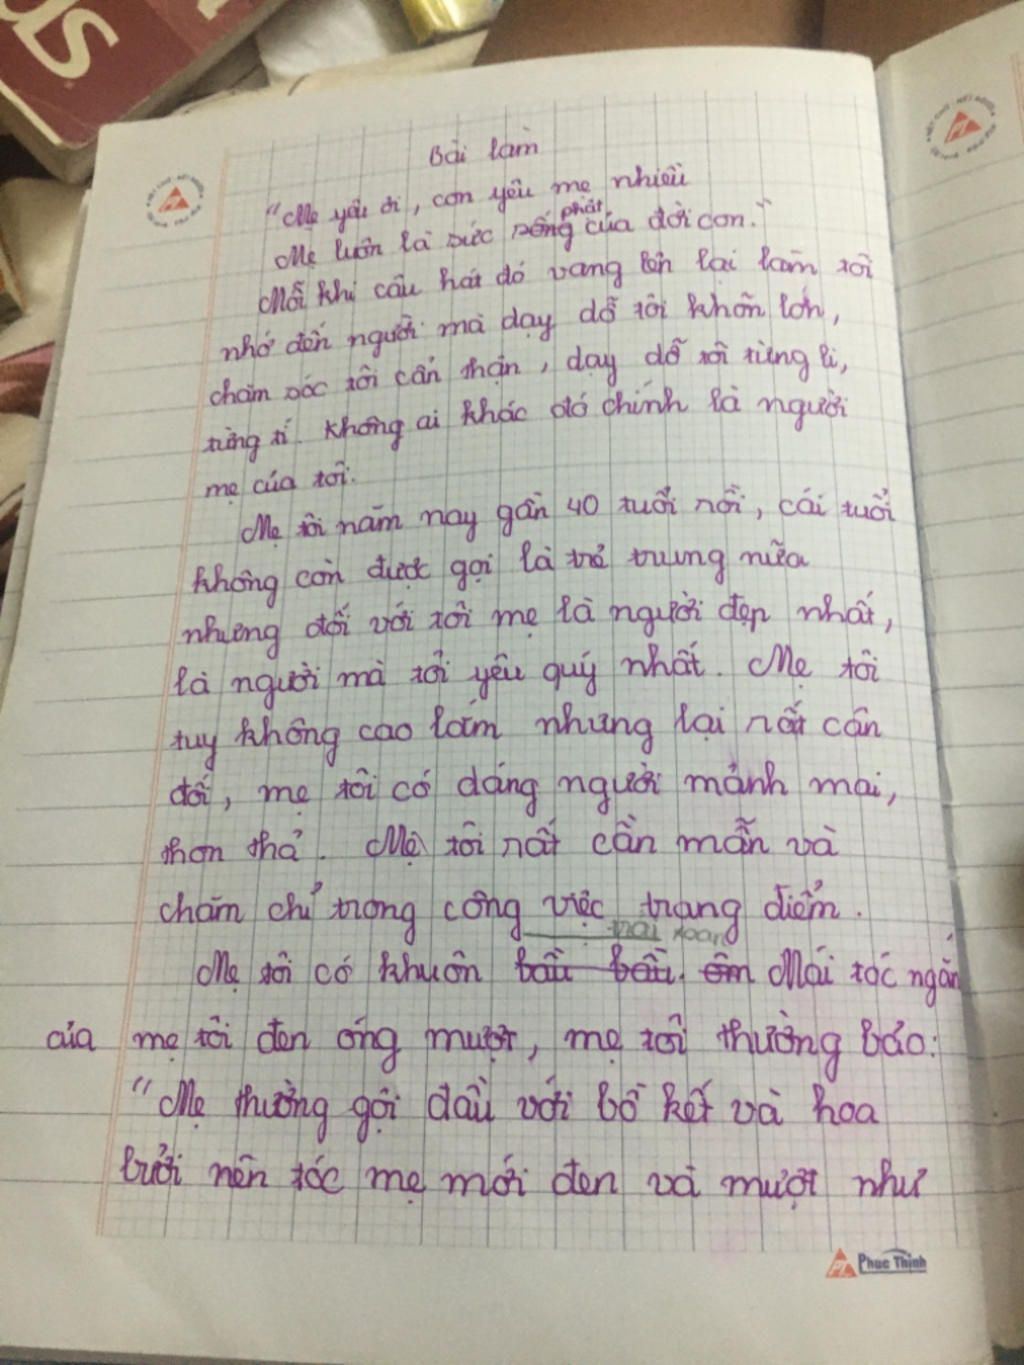 Bài làm
"Mẹ yêu ơi, con yêu mẹ nhiều
phát
Mẹ luôn là sức sống của đời con."
Mỗi khi câu hát đó vang lên lại làm tôi
nhớ đến người mà dạy dỗ tôi khôn lớn,
chăm sóc tôi cẩn thận, dạy dỗ tôi từng li,
từng tí. Không ai khác đó chính là người
mẹ của tôi.
Mẹ tôi năm nay gần 40 tuổi rồi, cái tuổi
không còn được gọi là trẻ trung nữa
nhưng đối với tôi mẹ là người đẹp nhất,
là người mà tôi yêu quý nhất. Mẹ tôi
tuy không cao lắm nhưng lại rất cân
đối, mẹ tôi có dáng người mảnh mai,
thon thả. Mẹ tôi rất cần mẫn và
chăm chỉ trong công việc trang điểm.
trái xoan
Mẹ tôi có khuôn bầu bầu. Mái tóc ngắn
của mẹ tôi đen óng mượt, mẹ tôi thường bảo:
"Mẹ thường gội đầu với bồ kết và hoa
bưởi nên tóc mẹ mới đen và mượt như
PT Phuc Thinh